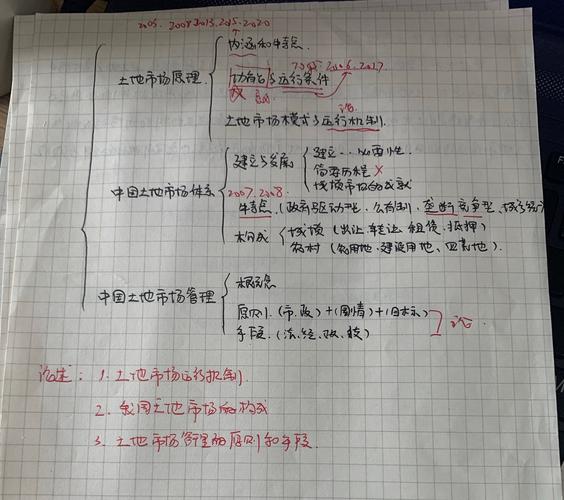 2005. 2008 2013. 2015. 2020
内涵和特点.
2005 2006. 2017
土地市场原理
功能与运行条件
论
土地市场模式与运行机制.
建立与发展
建立...必要性.
简要历程 ×
城镇市场的成就
中国土地市场体系
2007. 2008.
特点. (政府驱动型、公有制、垄断竞争型、城乡
构成
城镇 (出让.转让.租赁.抵押)
农村 (农用地.建设用地、四荒地).
概念
中国土地市场管理
原则. (市.政)+(国情)+(目标)
论.
手段. (法.经.政.技)
论述: 1. 土地市场运行机制.
2. 我国土地市场的构成
3. 土地市场管理的原则和手段.